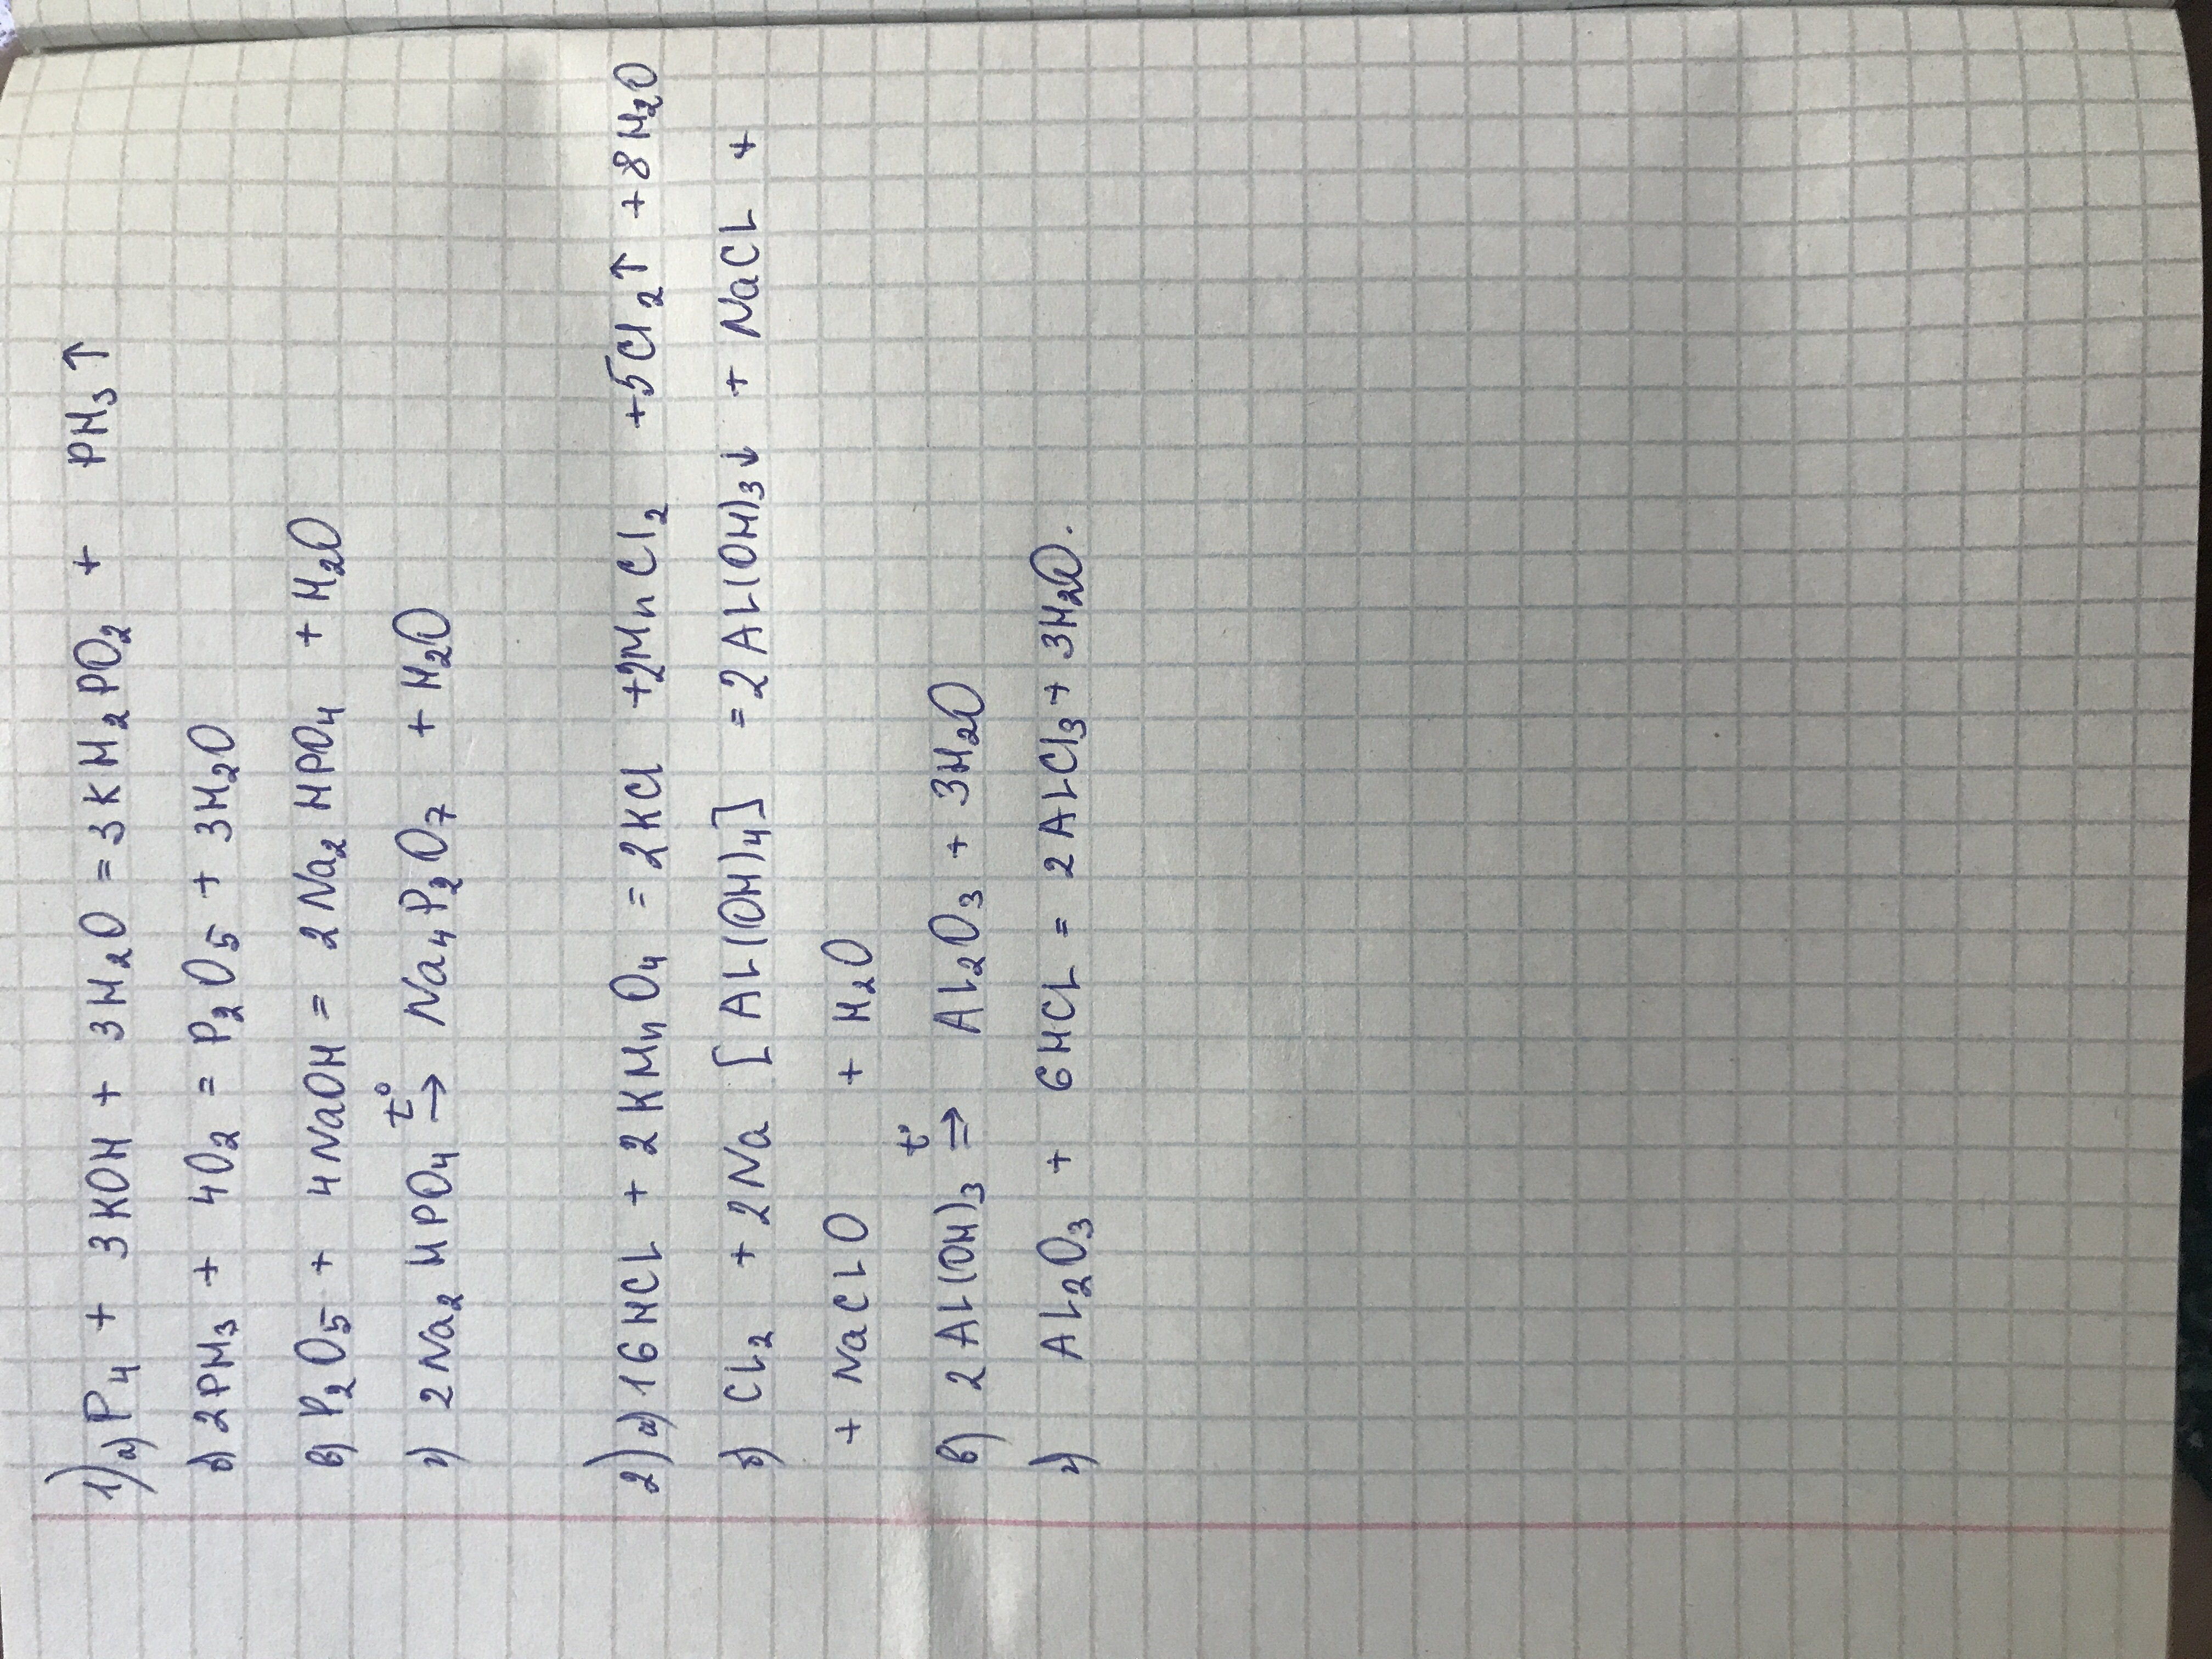 1) а) P₄ + 3KOH + 3H₂O = 3KH₂PO₂ + PH₃↑
б) 2PH₃ + 4O₂ = P₂O₅ + 3H₂O
в) P₂O₅ + 4NaOH = 2Na₂HPO₄ + H₂O
г) 2Na₂HPO₄ t°→ Na₄P₂O₇ + H₂O
2) а) 16HCl + 2KMnO₄ = 2KCl + 2MnCl₂ + 5Cl₂↑ + 8H₂O
б) Cl₂ + 2Na[Al(OH)₄] = 2Al(OH)₃↓ + NaCl +
+ NaClO + H₂O
в) 2Al(OH)₃ t°⇒ Al₂O₃ + 3H₂O
г) Al₂O₃ + 6HCl = 2AlCl₃ + 3H₂O.